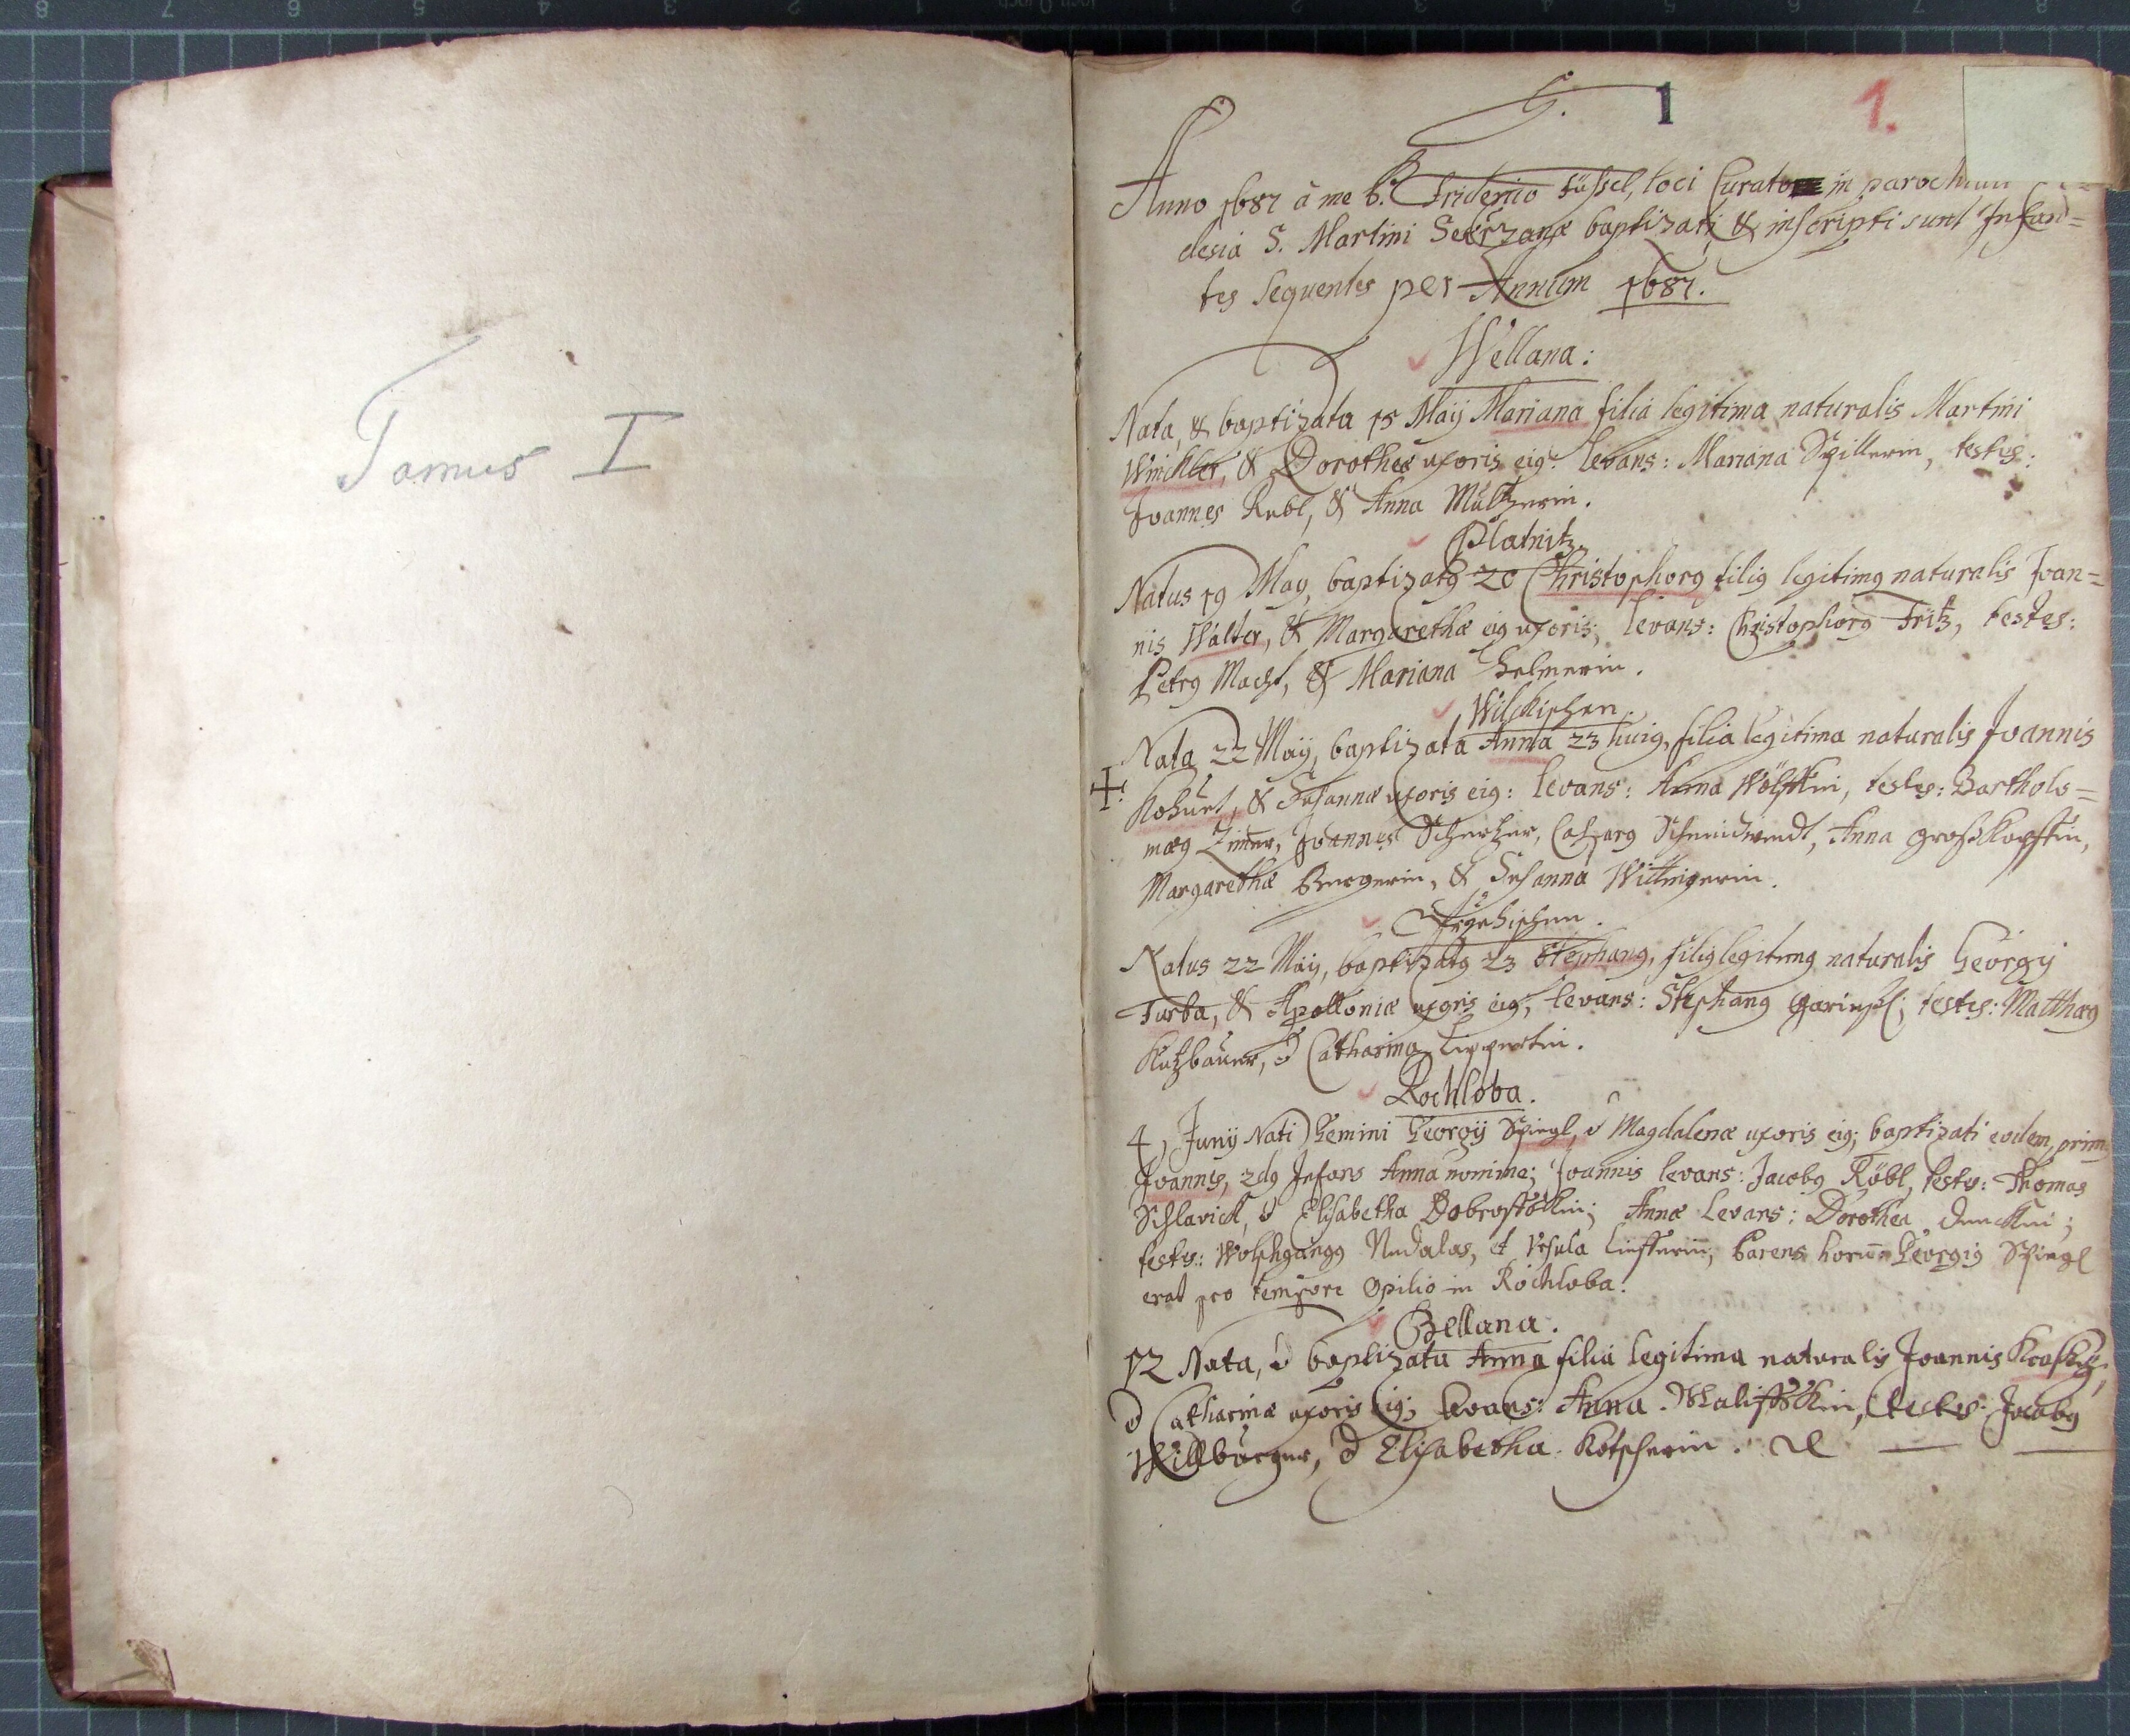 Tomus I
1 1.
Anno 1687 à me P. Friderico Füssel, loci Curato in parochiali
clesia S. Martini baptizati, & inscripti sunt Infan=
tes sequentes per Annum 1687.
Wellana:
Nata, & baptizata 15 Maij Mariana filia legitima naturalis Martini
Winckler, & Dorotheæ uxoris eig: levans: Mariana Spillerin, testes:
Joannes Rubl, & Anna Multzerin.
Platnitz.
Natus 19 May, baptizatg 20 Christophorg filig legitimg naturalis Joan=
nis Walter, & Margarethæ eig uxoris, levans: Christophorg Fritz, testes:
Petrg Macht, & Mariana Helmerin.
Wilckischen.
Nata 22 Maij, baptizata Anna 23 huig, filia legitima naturalis Joannis
Kohurt, & Susannæ uxoris eig: levans: Anna Wölfflin, testes: Bartholo=
mæg Zimer, Joannes Scherher, Casparg Schmidwendt, Anna großkopffin,
Margarethæ Bergerin, & Susanna Wittingerin.
Natus 22 Maij, baptizatg 23 Stephang, filig legitimg naturalis Georgij
Turba, & Apolloniæ uxoris eig, levans: Stephang testes: Matthæg
Kutzbauer, & Catharina Lippertin.
Rochloba.
4, Junij Nati Gemini Georgij Spiegl, & Magdalenæ uxoris eig; baptizati eodem, primg
Joannes, 2dg Infans Anna nomine; Joannis levans: Jacobg Röbl, testes: Thomas
Schlavick, & Elisabetha Annæ Levans: Dorothea
testes: Wolfhgangg Nudalas, et Vrsula Parens horum Georgig Spiegl
erat pro tempore Opilio in Rochloba.
Wellana.
12 Nata, & baptizata Anna filia legitima naturalis Joannis
& Catharinæ uxoris eig; levans: Anna testes: Jacobg
Willburger, & Elisabetha Kötscherin.